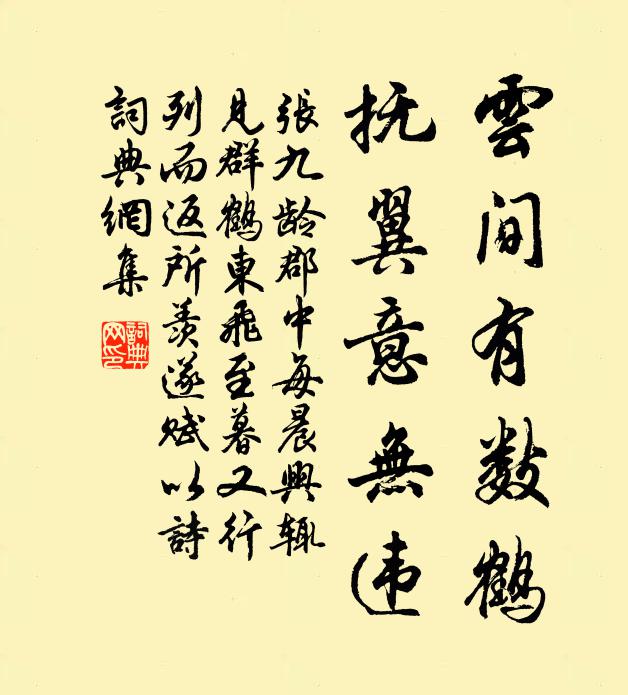 雲間有数鶴
抚翼意無违
張九龄郡中每晨興辄
見群鶴東飛至暮又行
列而返所羡遂赋以詩
詞典網集
詞典
网印